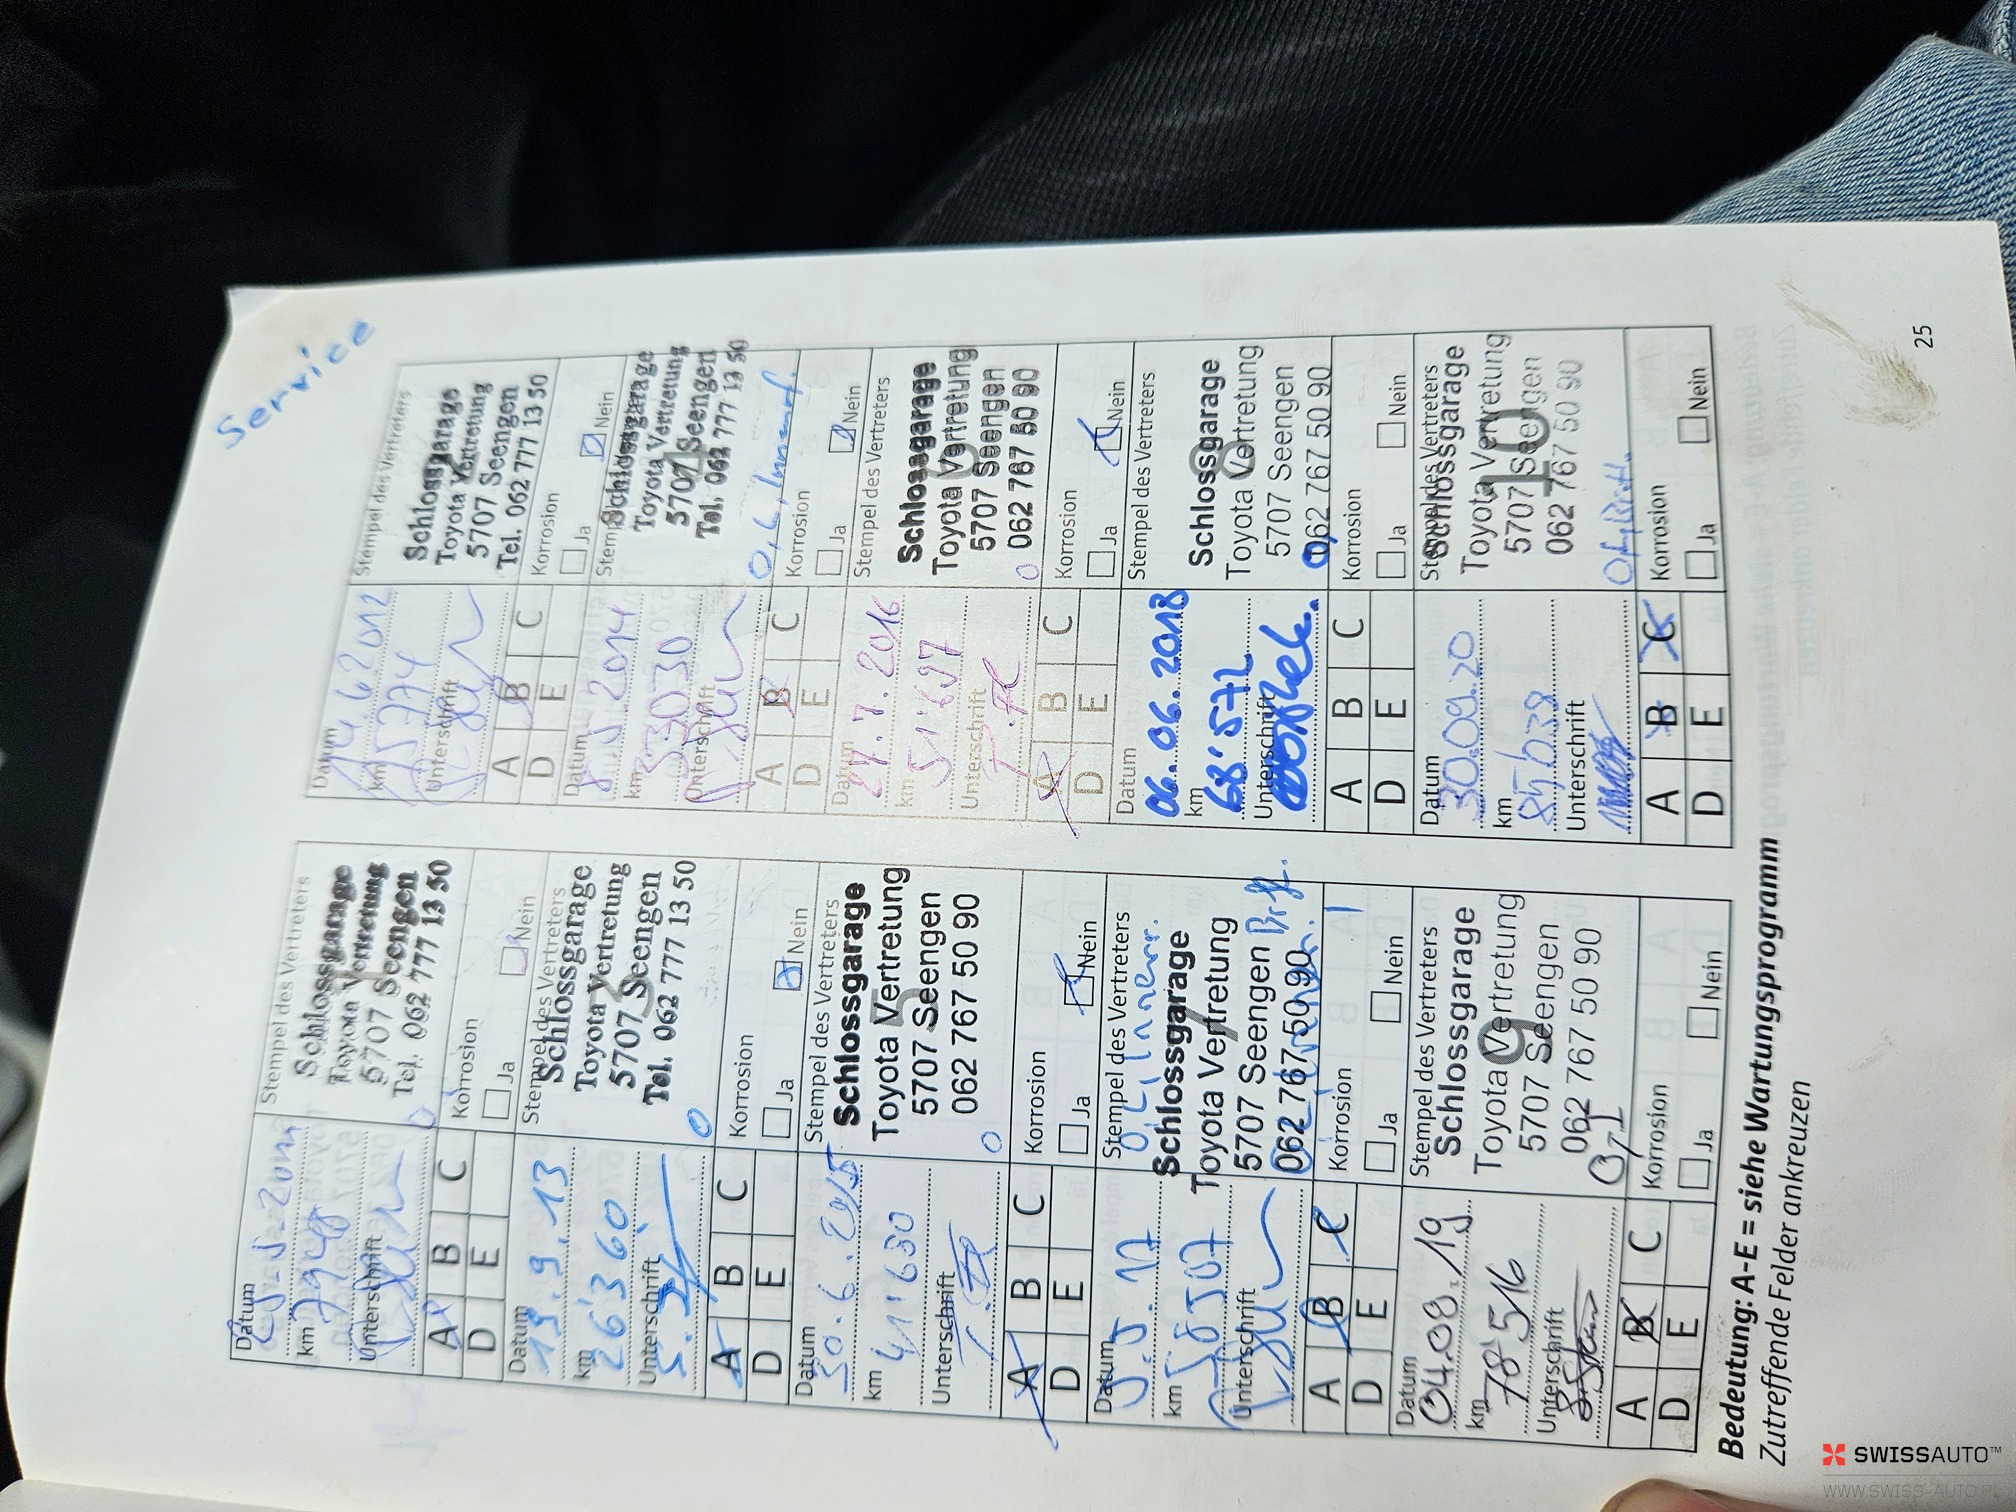 Service
Datum
Stempel des Vertreters
km 7948
Schlossgarage
Toyota Vertretung
5707 Seengen
Tel. 062 777 13 50
Unterschrift
A B C
D E
Korrosion
Ja Nein
Datum
14.6.2012
Stempel des Vertreters
km 15774
Schlossgarage
Toyota Vertretung
5707 Seengen
Tel. 062 777 13 50
Unterschrift
A B C
D E
Korrosion
Ja Nein
Datum
19.9.13
Stempel des Vertreters
km
26'360
Schlossgarage
Toyota Vertretung
5707 Seengen
Tel. 062 777 13 50
3
Unterschrift
A B C
D E
Korrosion
Ja Nein
Datum
8.5.2014
Stempel des Vertreters
km
33030
Schlossgarage
Toyota Vertretung
5707 Seengen
Tel. 062 777 13 50
Unterschrift
A B C
D E
Korrosion
Ja Nein
Datum
30.6.2015
Stempel des Vertreters
km
41'630
Schlossgarage
Toyota Vertretung
5707 Seengen
062 767 50 90
5
Unterschrift
A B C
D E
Korrosion
Ja Nein
Datum
27.7.2016
Stempel des Vertreters
km
51'697
Schlossgarage
Toyota Vertretung
5707 Seengen
062 767 50 90
6
Unterschrift
A B C
D E
Korrosion
Ja Nein
Datum
Stempel des Vertreters
km
Schlossgarage
Toyota Vertretung
5707 Seengen
062 767 50 90
7
Unterschrift
A B C
D E
Korrosion
Ja Nein
Datum
06.06.2018
Stempel des Vertreters
km
68'572
Schlossgarage
Toyota Vertretung
5707 Seengen
062 767 50 90
8
Unterschrift
A B C
D E
Korrosion
Ja Nein
Datum
04.09.19
Stempel des Vertreters
km
78'516
Schlossgarage
Toyota Vertretung
5707 Seengen
062 767 50 90
9
Unterschrift
A B C
D E
Korrosion
Ja Nein
Datum
30.09.20
Stempel des Vertreters
km
85'639
Schlossgarage
Toyota Vertretung
5707 Seengen
062 767 50 90
10
Unterschrift
A B C
D E
Korrosion
Ja Nein
Bedeutung: A-E = siehe Wartungsprogramm
Zutreffende Felder ankreuzen
25
SWISSAUTO™
WWW.SWISS-AUTO.PL